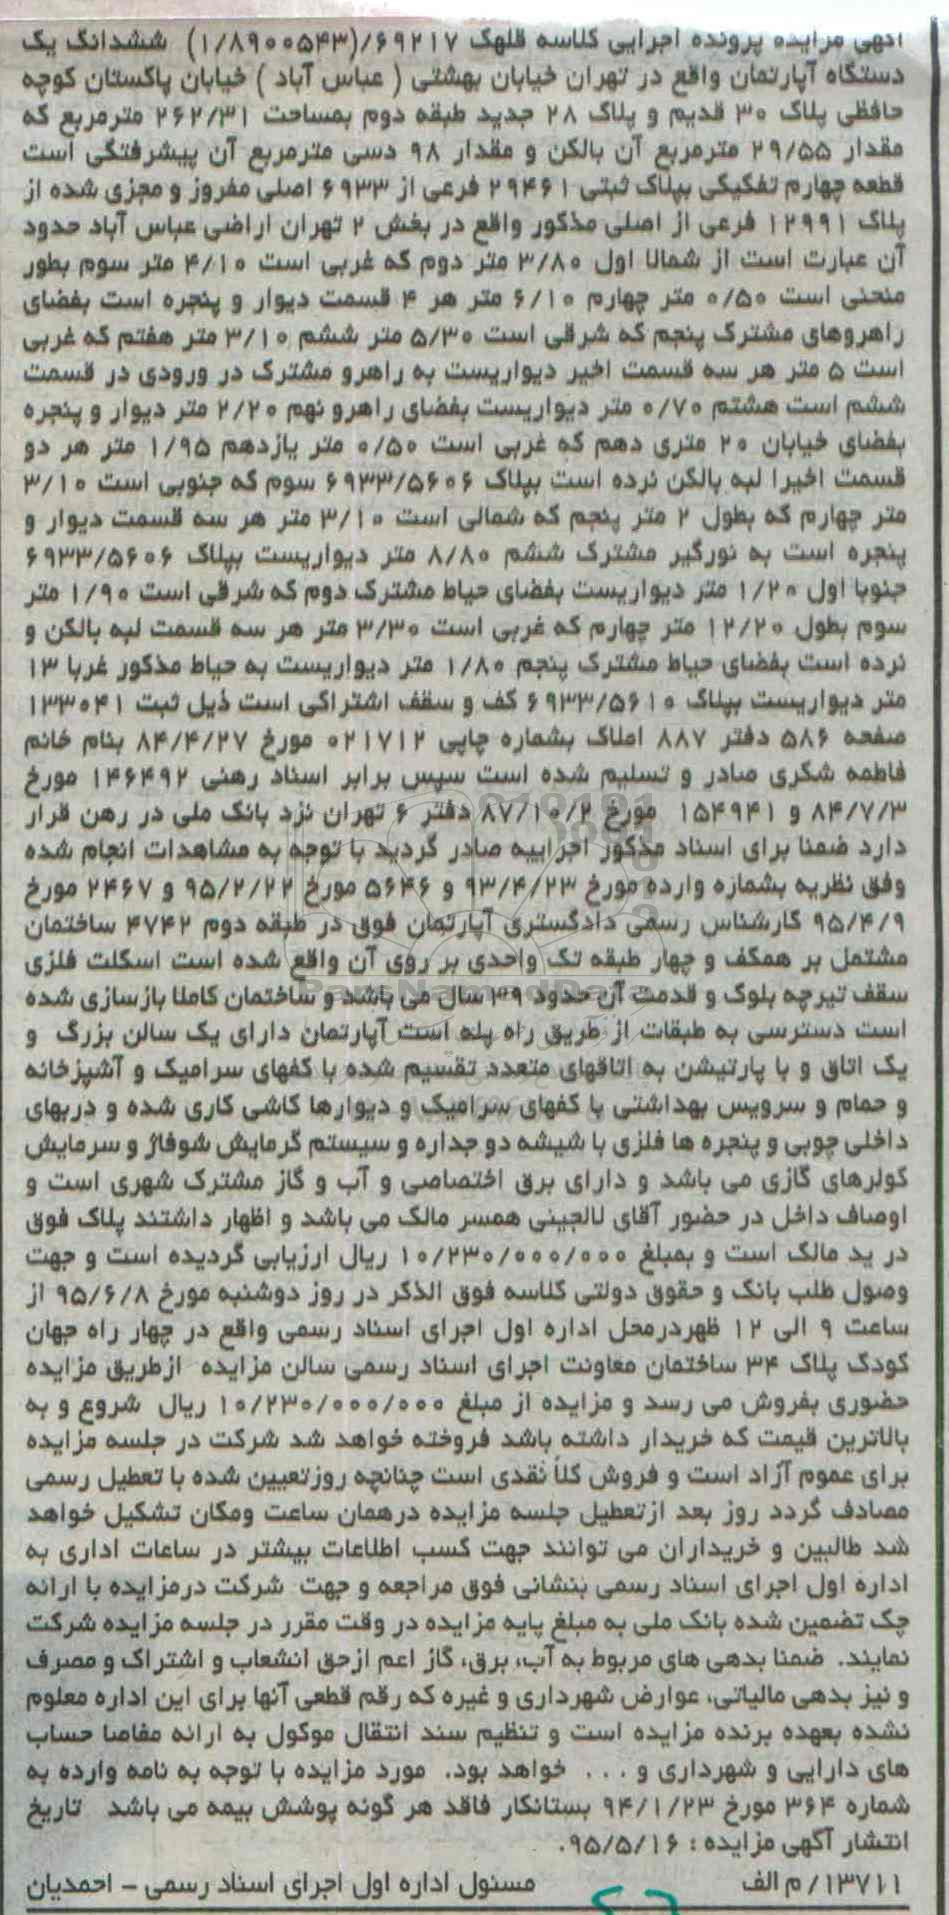 آگهی مزایده پرونده اجرایی کلاسه قلهک ۶۹۲۱۷/(۱/۸۹۰۰۵۴۳) ششدانگ یک
دستگاه آپارتمان واقع در تهران خیابان بهشتی ( عباس آباد ) خیابان پاکستان کوچه
حافظی پلاک ۳۰ قدیم و پلاک ۲۸ جدید طبقه دوم بمساحت ۲۶۲/۳۱ مترمربع که
مقدار ۲۹/۵۵ مترمربع آن بالکن و مقدار ۹۸ دسی مترمربع آن پیشرفتگی است
قطعه چهارم تفکیکی بپلاک ثبتی ۲۹۴۶۱ فرعی از ۶۹۳۳ اصلی مفروز و مجزی شده از
پلاک ۱۲۹۹۱ فرعی از اصلی مذکور واقع در بخش ۲ تهران اراضی عباس آباد حدود
آن عبارت است از شمالا اول ۳/۸۰ متر دوم که غربی است ۴/۱۰ متر سوم بطور
منحنی است ۰/۵۰ متر چهارم ۶/۱۰ متر هر ۴ قسمت دیوار و پنجره است بفضای
راهروهای مشترک پنجم که شرقی است ۵/۳۰ متر ششم ۳/۱۰ متر هفتم که غربی
است ۵ متر هر سه قسمت اخیر دیواریست به راهرو مشترک در ورودی در قسمت
ششم است هشتم ۰/۷۰ متر دیواریست بفضای راهرو نهم ۲/۲۰ متر دیوار و پنجره
بفضای خیابان ۲۰ متری دهم که غربی است ۰/۵۰ متر یازدهم ۱/۹۵ متر هر دو
قسمت اخیرا لبه بالکن نرده است بپلاک ۶۹۳۳/۵۶۰۶ سوم که جنوبی است ۳/۱۰
متر چهارم که بطول ۲ متر پنجم که شمالی است ۳/۱۰ متر هر سه قسمت دیوار و
پنجره است به نورگیر مشترک ششم ۸/۸۰ متر دیواریست بپلاک ۶۹۳۳/۵۶۰۶
جنوبا اول ۱/۲۰ متر دیواریست بفضای حیاط مشترک دوم که شرقی است ۱/۹۰ متر
سوم بطول ۱۲/۲۰ متر چهارم که غربی است ۳/۳۰ متر هر سه قسمت لبه بالکن و
نرده است بفضای حیاط مشترک پنجم ۱/۸۰ متر دیواریست به حیاط مذکور غربا ۱۳
متر دیواریست بپلاک ۶۹۳۳/۵۶۱۰ کف و سقف اشتراکی است ذیل ثبت ۱۳۳۰۴۱
صفحه ۵۸۶ دفتر ۸۸۷ املاک بشماره چاپی ۰۲۱۷۱۲ مورخ ۸۴/۴/۲۷ بنام خانم
فاطمه شکری صادر و تسلیم شده است سپس برابر اسناد رهنی ۱۴۶۴۹۲ مورخ
۸۴/۷/۳ و ۱۵۴۹۴۱ مورخ ۸۷/۱۰/۲ دفتر ۶ تهران نزد بانک ملی در رهن قرار
دارد ضمنا برای اسناد مذکور اجراییه صادر گردید با توجه به مشاهدات انجام شده
وفق نظریه بشماره وارده مورخ ۹۳/۴/۲۳ و ۵۶۴۶ مورخ ۹۵/۲/۲۲ و ۲۴۶۷ مورخ
۹۵/۴/۹ کارشناس رسمی دادگستری آپارتمان فوق در طبقه دوم ۴۷۴۲ ساختمان
مشتمل بر همکف و چهار طبقه تک واحدی بر روی آن واقع شده است اسکلت فلزی
سقف تیرچه بلوک و قدمت آن حدود ۳۹ سال می باشد و ساختمان کاملا بازسازی شده
است دسترسی به طبقات از طریق راه پله است آپارتمان دارای یک سالن بزرگ و
یک اتاق و با پارتیشن به اتاقهای متعدد تقسیم شده با کفهای سرامیک و آشپزخانه
و حمام و سرویس بهداشتی با کفهای سرامیک و دیوارها کاشی کاری شده و دربهای
داخلی چوبی و پنجره ها فلزی با شیشه دو جداره و سیستم گرمایش شوفاژ و سرمایش
کولرهای گازی می باشد و دارای برق اختصاصی و آب و گاز مشترک شهری است و
اوصاف داخل در حضور آقای لالجینی همسر مالک می باشد و اظهار داشتند پلاک فوق
در ید مالک است و بمبلغ ۱۰/۲۳۰/۰۰۰/۰۰۰ ریال ارزیابی گردیده است و جهت
وصول طلب بانک و حقوق دولتی کلاسه فوق الذکر در روز دوشنبه مورخ ۹۵/۶/۸ از
ساعت ۹ الی ۱۲ ظهردرمحل اداره اول اجرای اسناد رسمی واقع در چهار راه جهان
کودک پلاک ۳۴ ساختمان معاونت اجرای اسناد رسمی سالن مزایده ازطریق مزایده
حضوری بفروش می رسد و مزایده از مبلغ ۱۰/۲۳۰/۰۰۰/۰۰۰ ریال شروع و به
بالاترین قیمت که خریدار داشته باشد فروخته خواهد شد شرکت در جلسه مزایده
برای عموم آزاد است و فروش کلاً نقدی است چنانچه روزتعیین شده با تعطیل رسمی
مصادف گردد روز بعد ازتعطیل جلسه مزایده درهمان ساعت ومکان تشکیل خواهد
شد طالبین و خریداران می توانند جهت کسب اطلاعات بیشتر در ساعات اداری به
اداره اول اجرای اسناد رسمی بنشانی فوق مراجعه و جهت شرکت درمزایده با ارائه
چک تضمین شده بانک ملی به مبلغ پایه مزایده در وقت مقرر در جلسه مزایده شرکت
نمایند. ضمنا بدهی های مربوط به آب، برق، گاز اعم ازحق انشعاب و اشتراک و مصرف
و نیز بدهی مالیاتی، عوارض شهرداری و غیره که رقم قطعی آنها برای این اداره معلوم
نشده بعهده برنده مزایده است و تنظیم سند انتقال موکول به ارائه مفاصا حساب
های دارایی و شهرداری و . . . خواهد بود. مورد مزایده با توجه به نامه وارده به
شماره ۳۶۴ مورخ ۹۴/۱/۲۳ بستانکار فاقد هر گونه پوشش بیمه می باشد تاریخ
انتشار آگهی مزایده : ۹۵/۵/۱۶.
۱۳۷۱۱/ م الف مسئول اداره اول اجرای اسناد رسمی – احمدیان